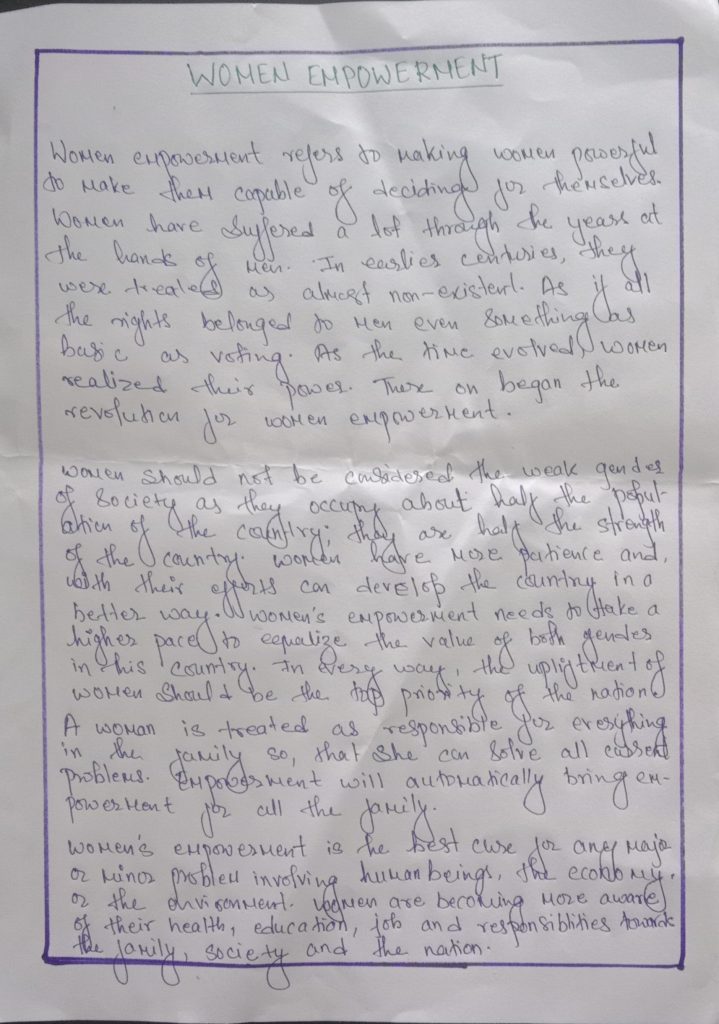 WOMEN EMPOWERMENT
Women empowerment refers to making women powerful
to make them capable of deciding for themselves.
Women have suffered a lot through the years at
the hands of men. In earlier centuries, they
were treated as almost non-existent. As if all
the rights belonged to men even something as
basic as voting. As the time evolved, women
realized their power. There on began the
revolution for women empowerment.
Women should not be considered the weak gender
of society as they occupy about half the popul-
ation of the country; they are half the strength
of the country. Women have more patience and,
with their efforts can develop the country in a
better way. Women's empowerment needs to take a
higher pace to equalize the value of both gender
in this country. In every way, the upligtment of
women should be the top priority of the nation.
A woman is treated as responsible for everything
in the family so, that she can solve all current
problems. Empowerment will automatically bring em-
powerment for all the family.
Women's empowerment is the best cure for any major
or minor problem involving human beings, the economy,
or the environment. Women are becoming more aware
of their health, education, job and responsiblities towards
the family, society and the nation.